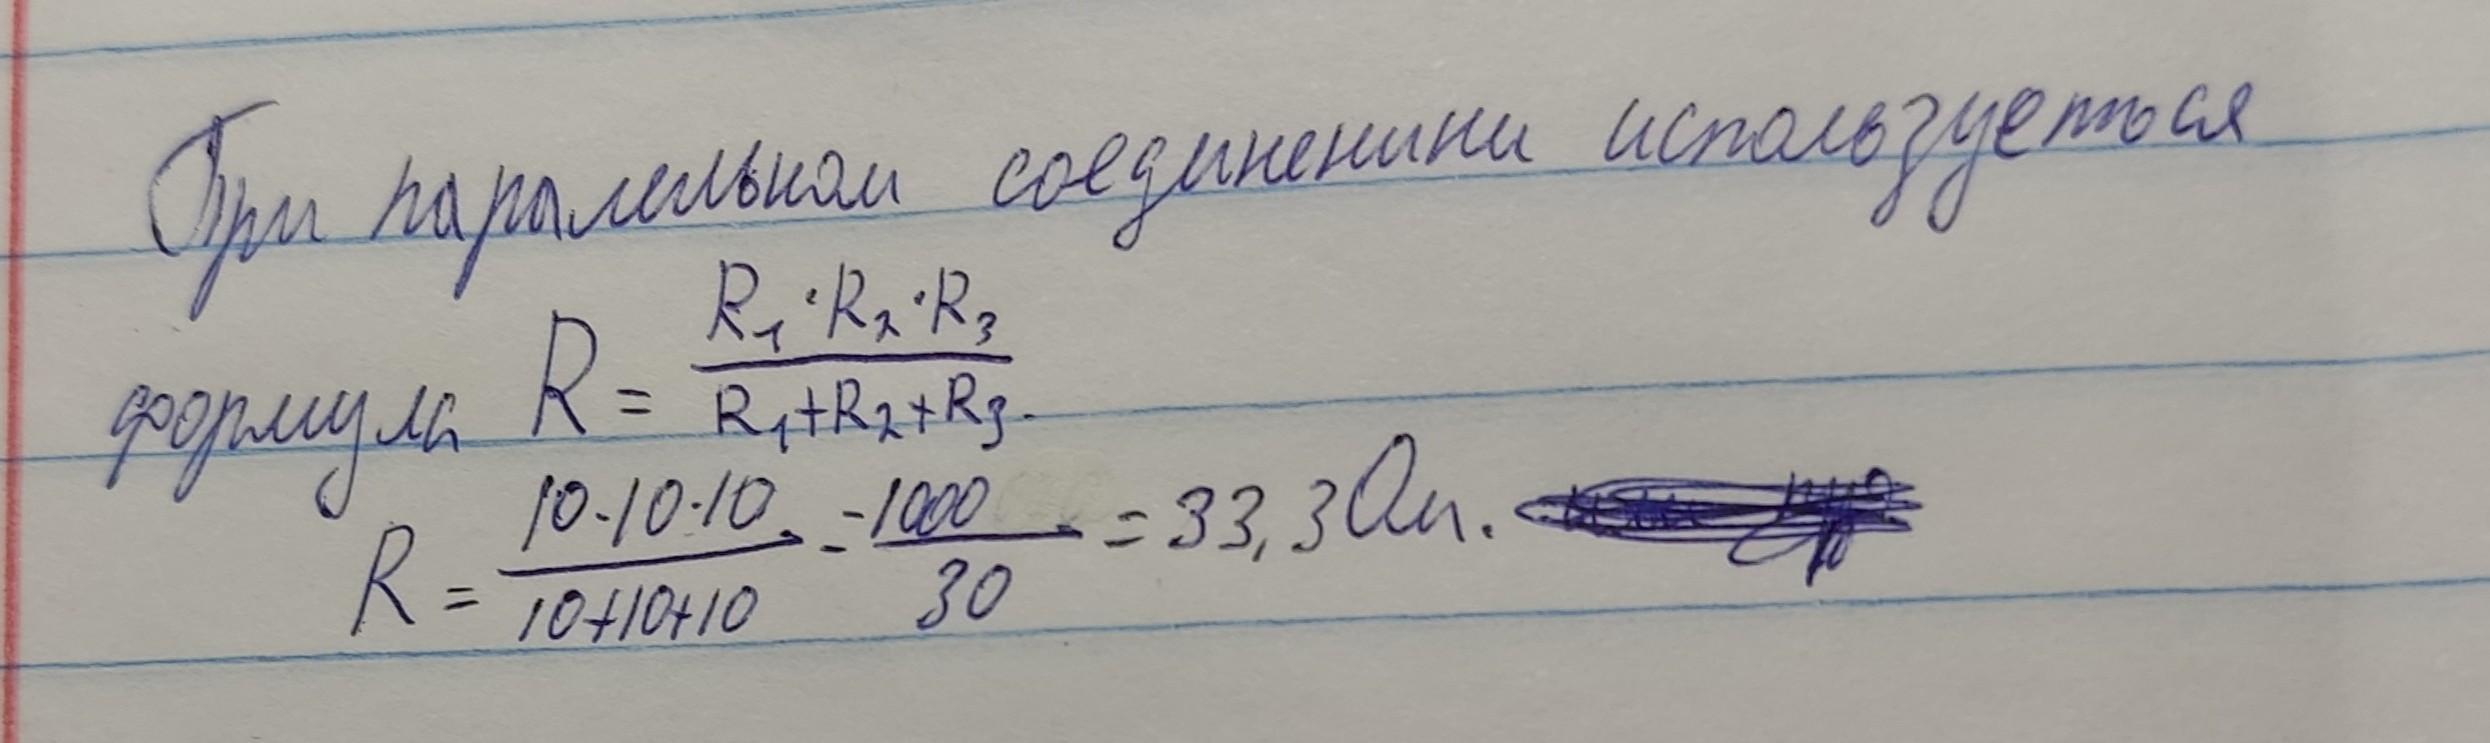 При паралельном соединенини используеться
формула R = R₁·R₂·R₃ / R₁+R₂+R₃.
R = 10·10·10 / 10+10+10 = 1000 / 30 = 33,3 Ом.